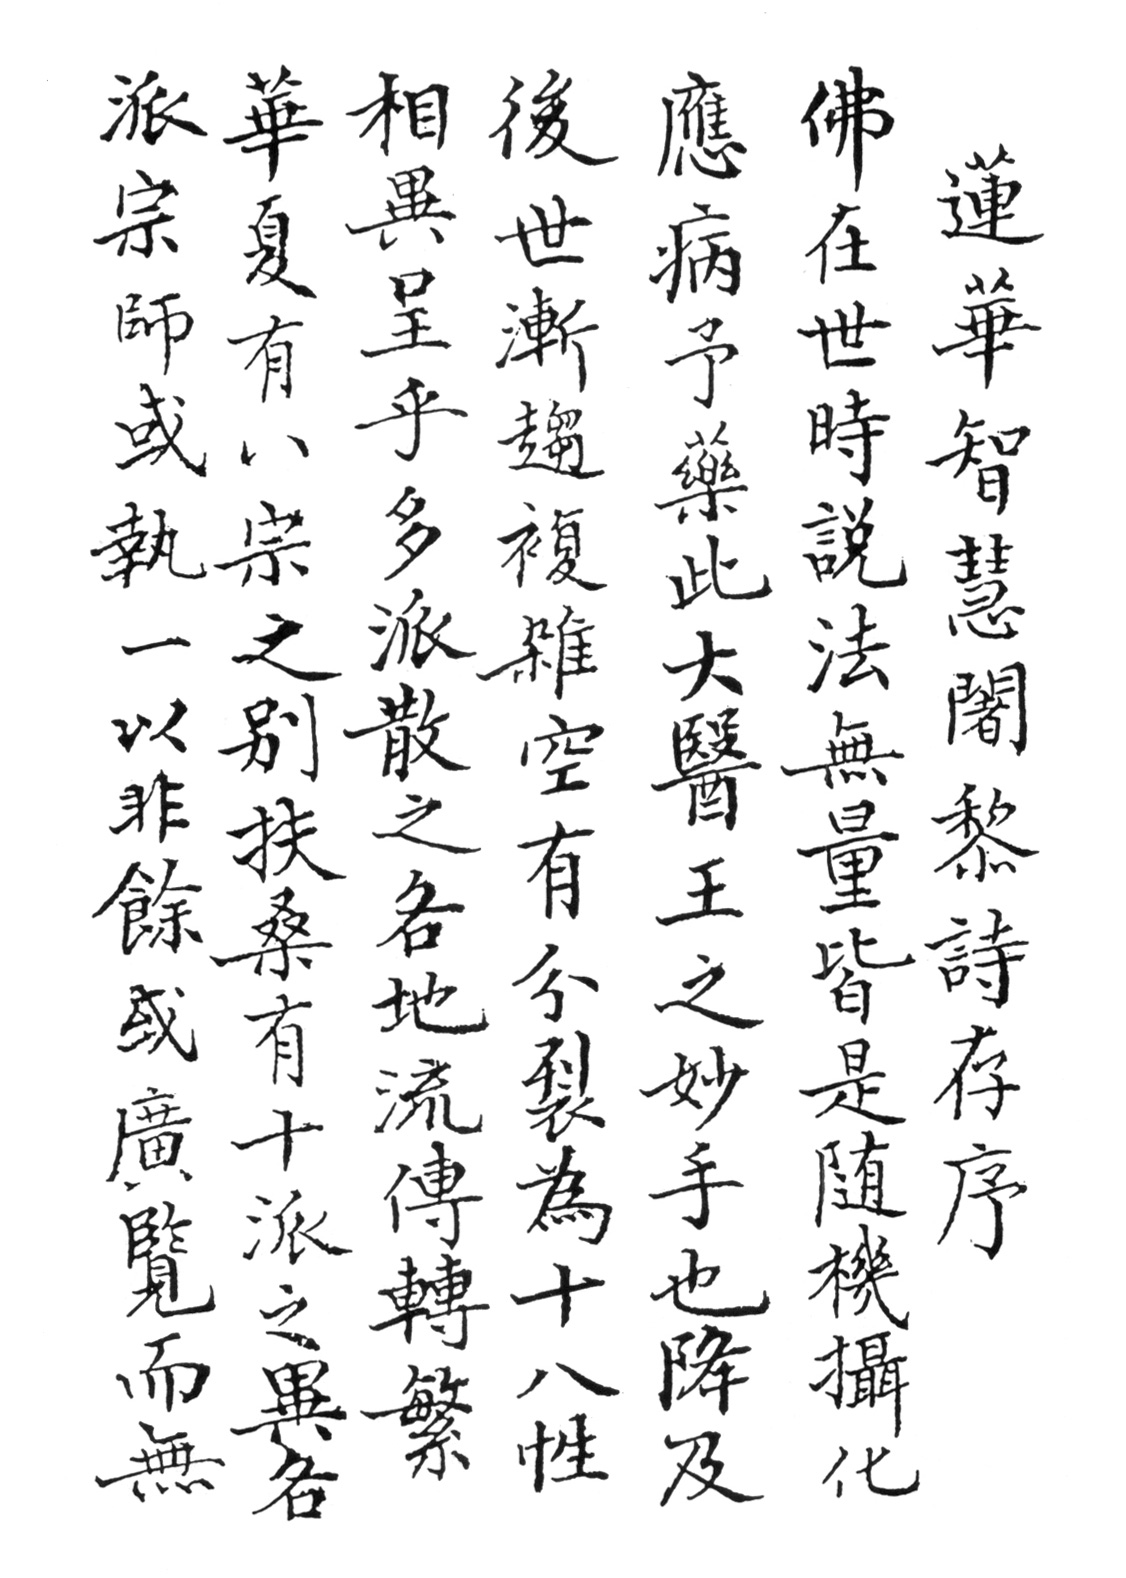 蓮華智慧闍黎詩存序
佛在世時説法無量皆是随機攝化
應病予藥此大醫王之妙手也降及
後世漸趨複雜空有分裂為十八性
相異呈乎多派散之各地流傳轉繁
華夏有八宗之别扶桑有十派之異各
派宗師或執一以非餘或廣覽而無